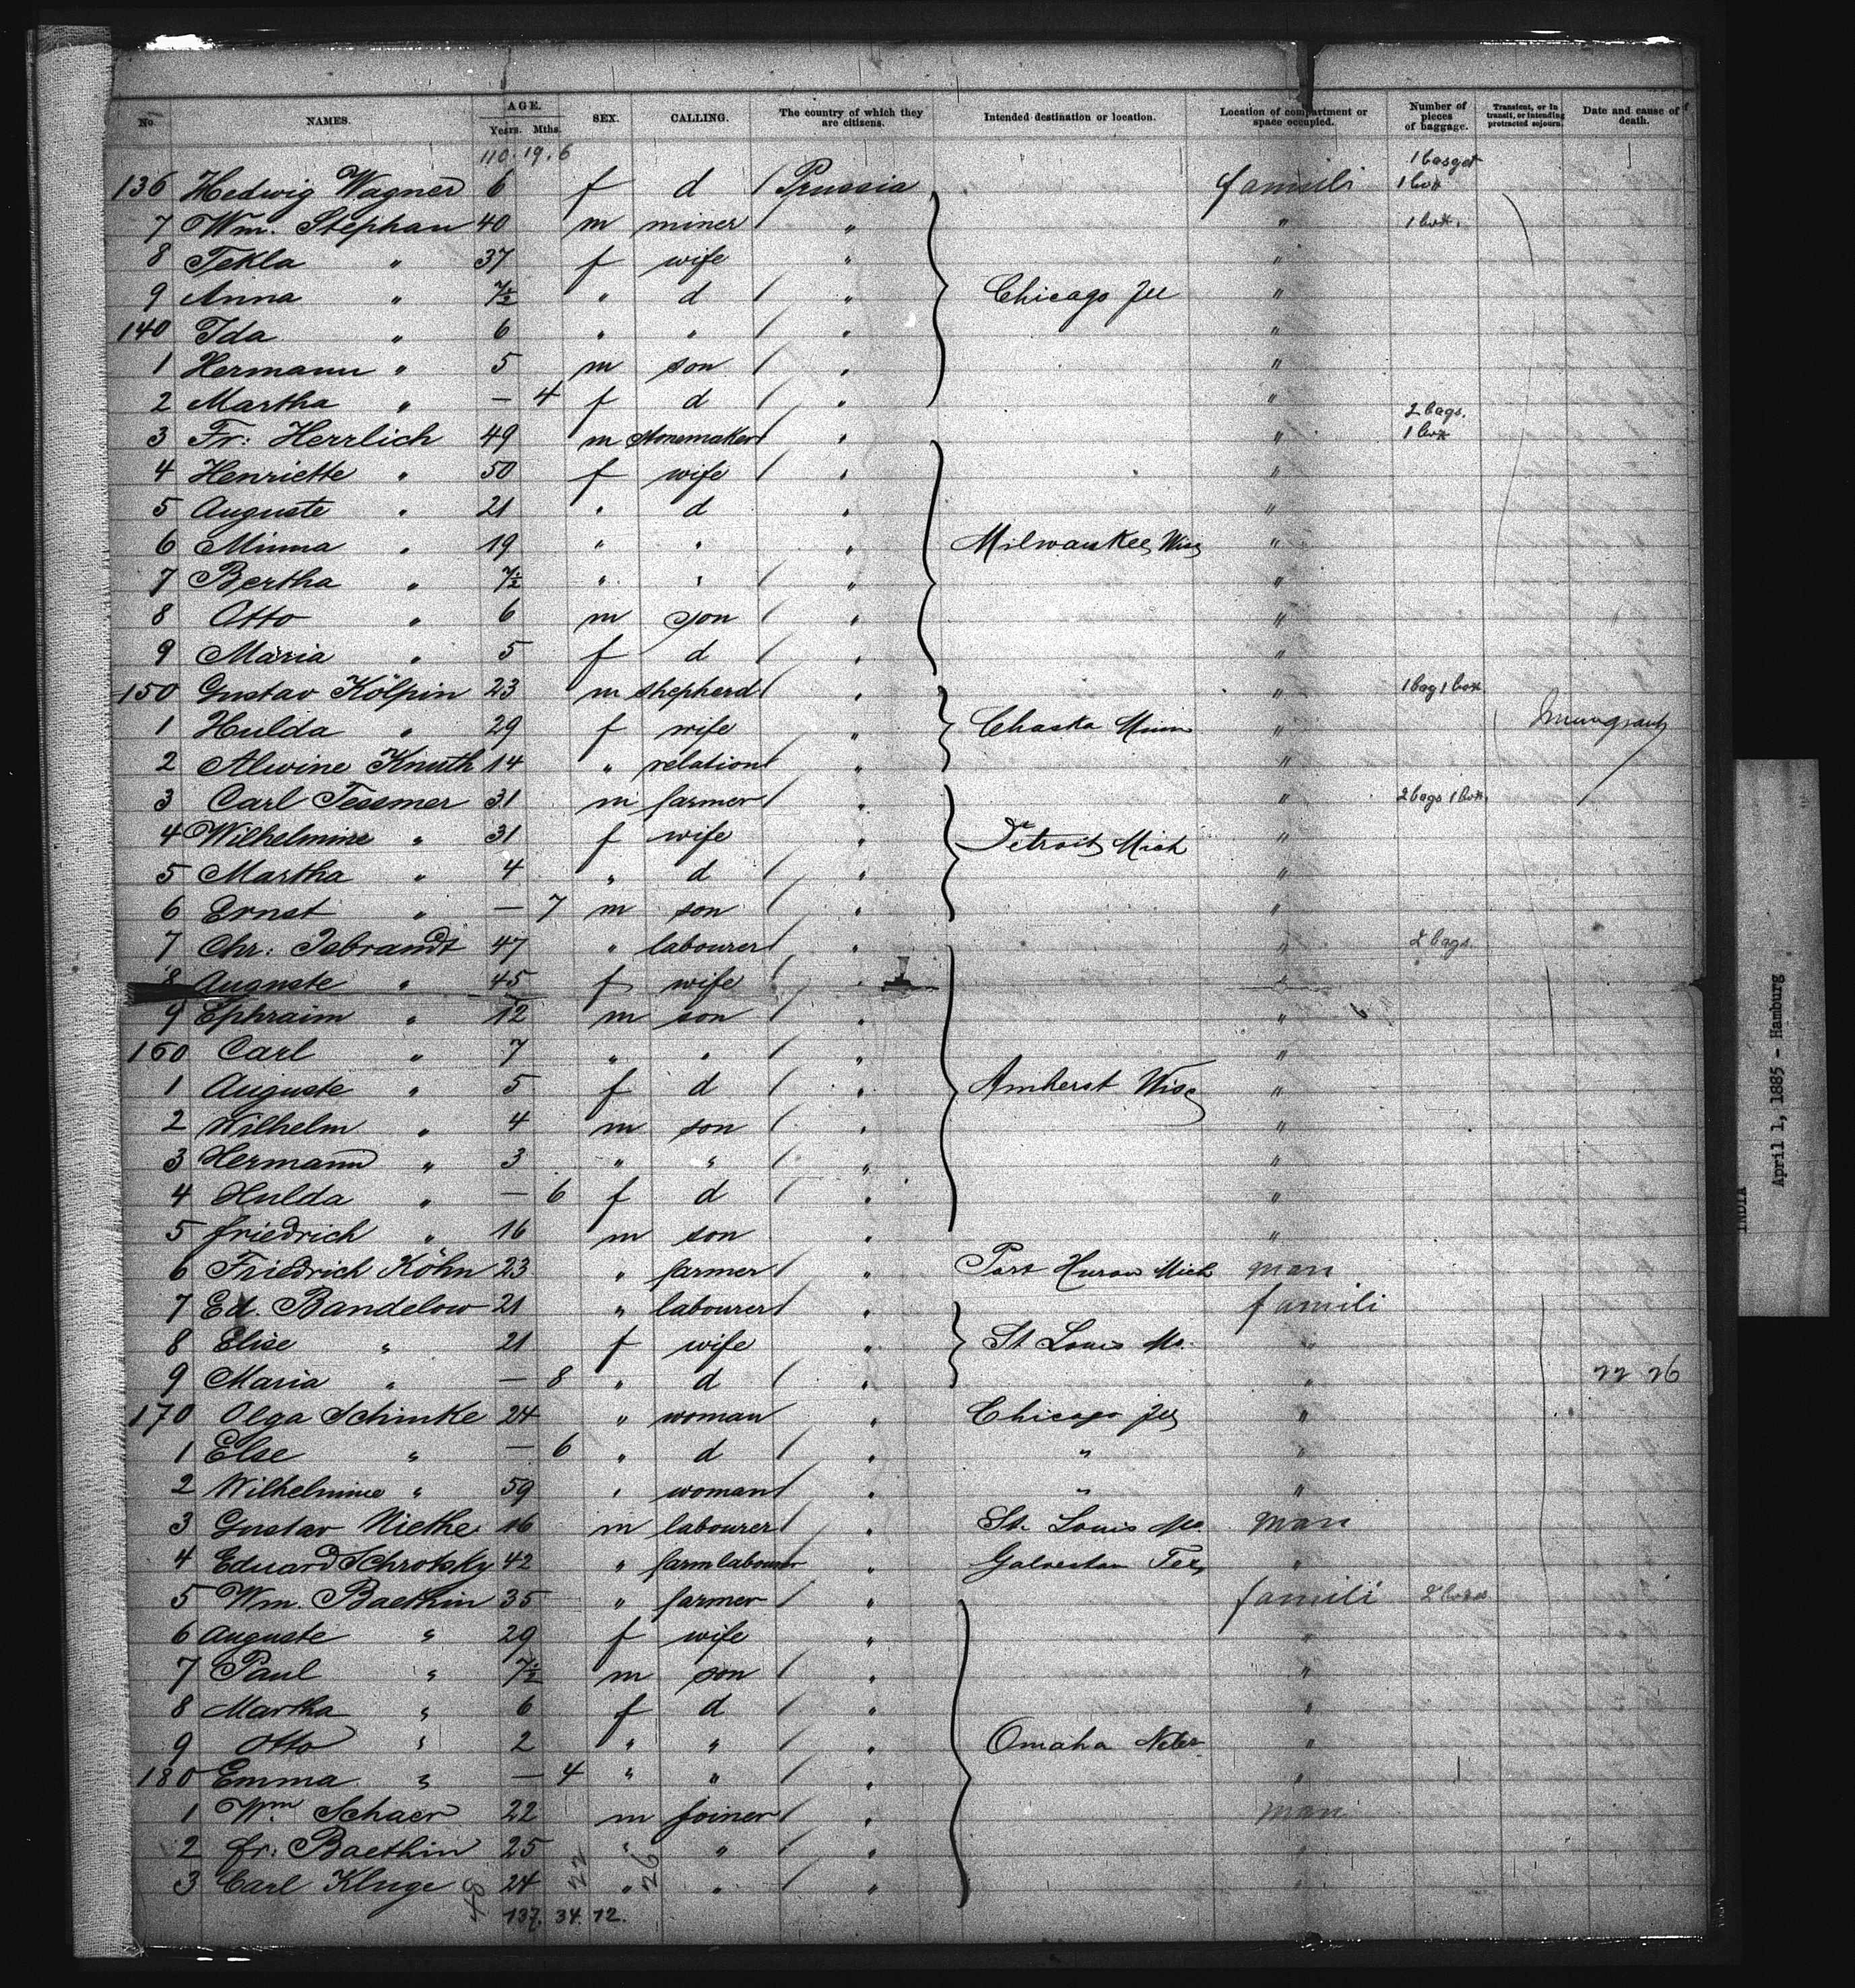 No NAMES. AGE. Years. Mths. SEX. CALLING. The country of which they are citizens. Intended destination or location. Location of compartment or space occupied. Number of pieces of baggage. Transient, or in transit, or intending protracted sojourn. Date and cause of death.
110. 19. 6 1 basget
136 Hedwig Wagner 6 f d / Prussia famili 1 box
7 Wm. Stephan 40 m miner / " " 1 box.
8 Tekla " 37 f wife " "
9 Anna " 7½ " d / " Chicago Ill "
140 Ida " 6 " " / " "
1 Hermann " 5 m son / " "
2 Martha " — 4 f d / " "
2 bags.
3 Fr: Herrlich 49 m stonemaker / " " 1 box
4 Henriette " 50 f wife / " "
5 Auguste " 21 " d " "
6 Minna " 19 " " " Milwaukee Wisc "
7 Bertha " 7½ " " / " "
8 Otto " 6 m son / " "
9 Maria " 5 f d / " "
150 Gustav Kölpin 23 m shepherd / " " 1 bag 1 box
1 Hulda " 29 f wife " Chaska Minn "
2 Alwine Knuth 14 " relation / " "
3 Carl Tessmer 31 m farmer / " " 2 bags 1 box.
4 Wilhelmine " 31 f wife " Detroit Mich "
5 Martha " 4 " d / " "
6 Ernst " — 7 m son / " "
7 Chr: Isbrandt 47 " labourer / " " 2 bags.
8 Auguste " 45 f wife / " "
9 Ephraim " 12 m son / " "
160 Carl " 7 " " / " "
1 Auguste " 5 f d / " Amherst Wisc "
2 Wilhelm " 4 m son / " "
3 Hermann " 3 " " / " "
4 Hulda " — 6 f d / " "
5 friedrich " 16 m son " "
6 Friedrich Köhn 23 " farmer / " Port Huron Mich man
7 Ed. Bandelow 21 " labourer / " famili
8 Elise " 21 f wife " St Louis Mo. "
9 Maria " — 8 " d / " " 22 26
170 Olga Schimke 24 " woman " Chicago Ill "
1 Else " — 6 " d / " " "
2 Wilhelmine " 59 " woman / " " "
3 Gustav Niethe 16 m labourer / " St. Louis Mo. man
4 Eduard Schrotsky 42 " farmlabourer " Galveston Tex "
5 Wm. Baethin 35 " farmer / " famili 2 boxes
6 Auguste " 29 f wife " "
7 Paul " 7½ m son / " "
8 Martha " 6 f d / " "
9 Otto " 2 " " / " Omaha Nebr. "
180 Emma " — 4 " " / " "
1 Wm Schaer 22 m joiner / " man
2 fr: Baethin 25 " " / " "
3 Carl Kluge 24 " " / " "
48 22 26
137. 34. 12.
INDIA
April 1, 1885 - Hamburg